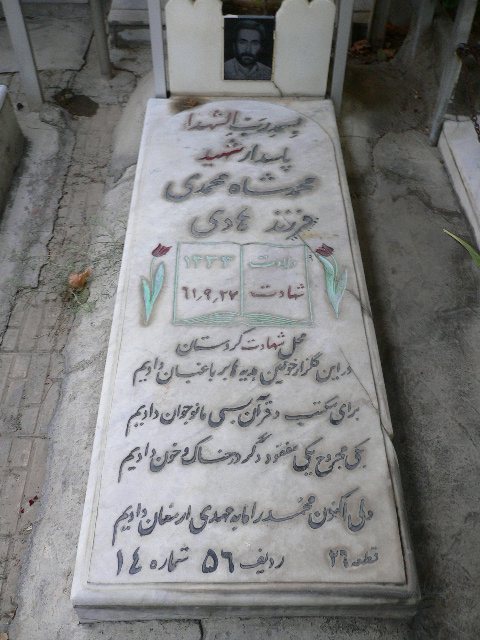 بسم رب الشهدا
پاسدار شهید
محمد شاه محمدی
فرزند هادی
ولادت ۱۳۳۳
شهادت ۶۱٫۹٫۲۷
محل شهادت کردستان
در این گلزار خونین هدیه‌ها بر باغبان دادیم
برای مکتب و قرآن بسی ما نوجوان دادیم
یکی مجروح یکی مفقود دگر در خاک و خون دادیم
ولی اکنون محمد را ما به مهدی ارمغان دادیم
قطعه ۲۶ ردیف ۵۶ شماره ۱۴